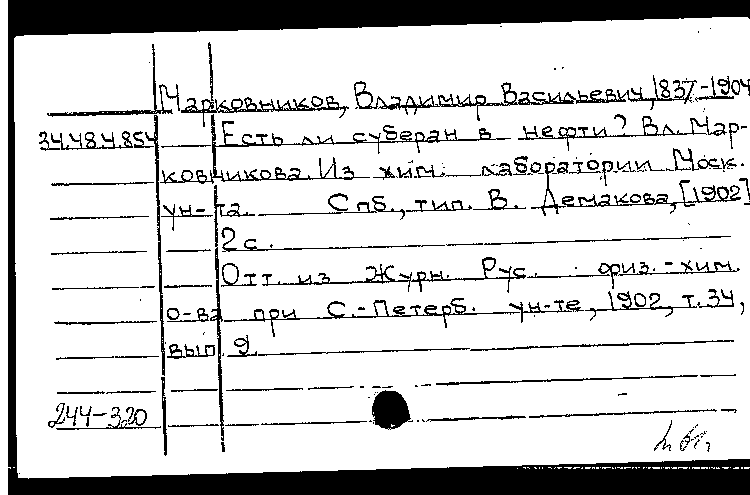 Марковников, Владимир Васильевич, 1837-1904
34.484.854 Есть ли суберан в нефти? Вл. Мар-
ковникова. Из хим. лаборатории Моск.
ун-та. Спб., тип. В. Демакова, [1902]
2 с.
Отт. из Журн. Рус. физ.-хим.
о-ва при С.-Петерб. ун-те, 1902, т. 34,
вып. 9.
244-320